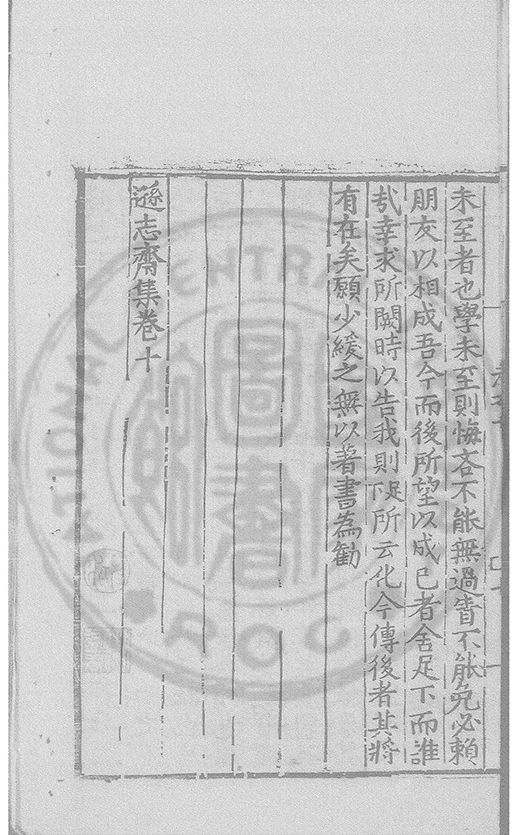 未至者也學未至則悔吝不能無過眚不能免必賴
朋友以相成吾今而後所望以成己者舍足下而誰
㢤幸求所闕時以告我則足下所云化今傳後者其將
有在矣願少緩之無以著書為勸
遜志齋集卷十